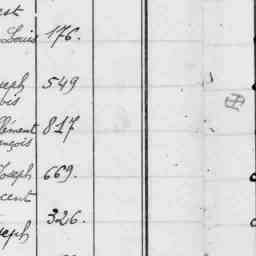 est
Louis 176.
seph 549
bis
lément 817
ançois
Joseph 669.
cent
326.
seph